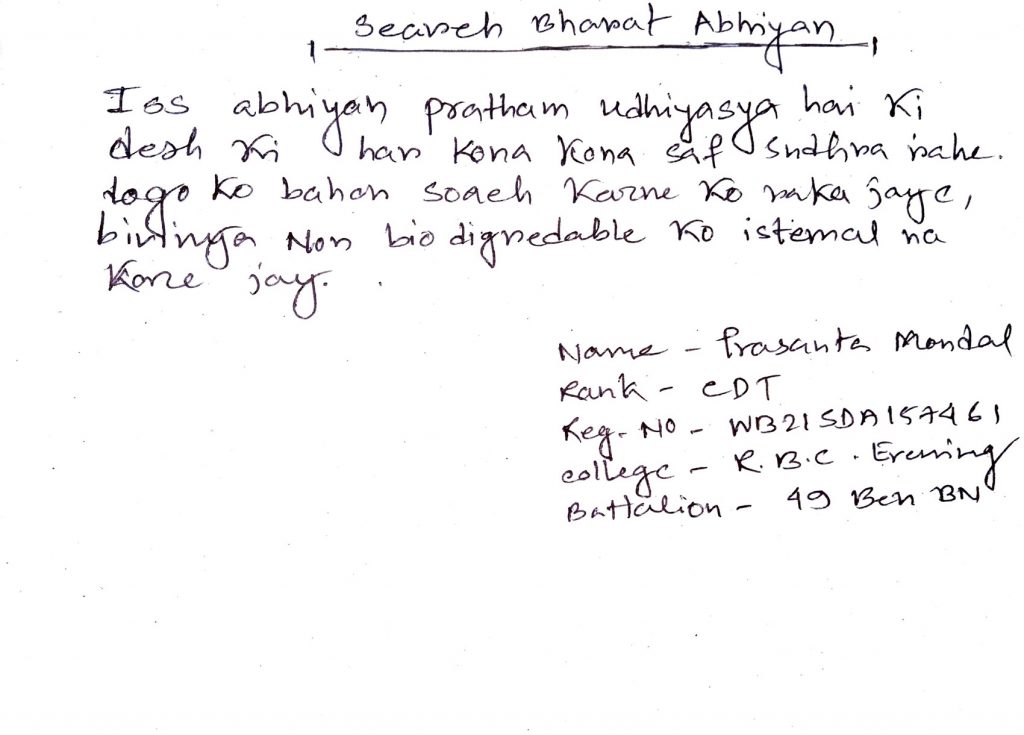 Searech Bharat Abhiyan
Iss abhiyan pratham udhiyasya hai Ki
desh Ki har Kona Kona saf sudhra rahe.
logo Ko bahar soach Karne Ko raka jaye,
Non bio digredable Ko istemal na
Kare jay.
Name - Prasanta Mondal
Rank - CDT
Reg. No - WB21SDA157461
college - R.B.C. Evening
Battalion - 49 Ben BN